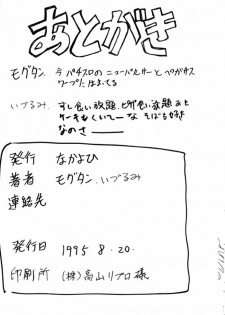 あとがき
モグタン 今 パチスロのニューパルサーとペガサス
ワープにはまってる
いづるみ すし食い放題、ピザ食い放題あと
ケーキもくいてーな そばも好き
なのさ——
発行 なかよひ
著者 モグタン、いづるみ
連絡先
発行日 1995 8.20.
印刷所 (株)高山リプロ様